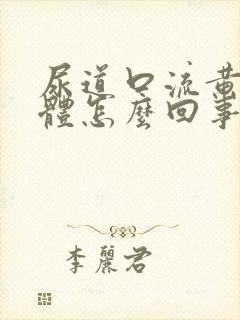 尿道口流黃
體怎麼回事
李麗君